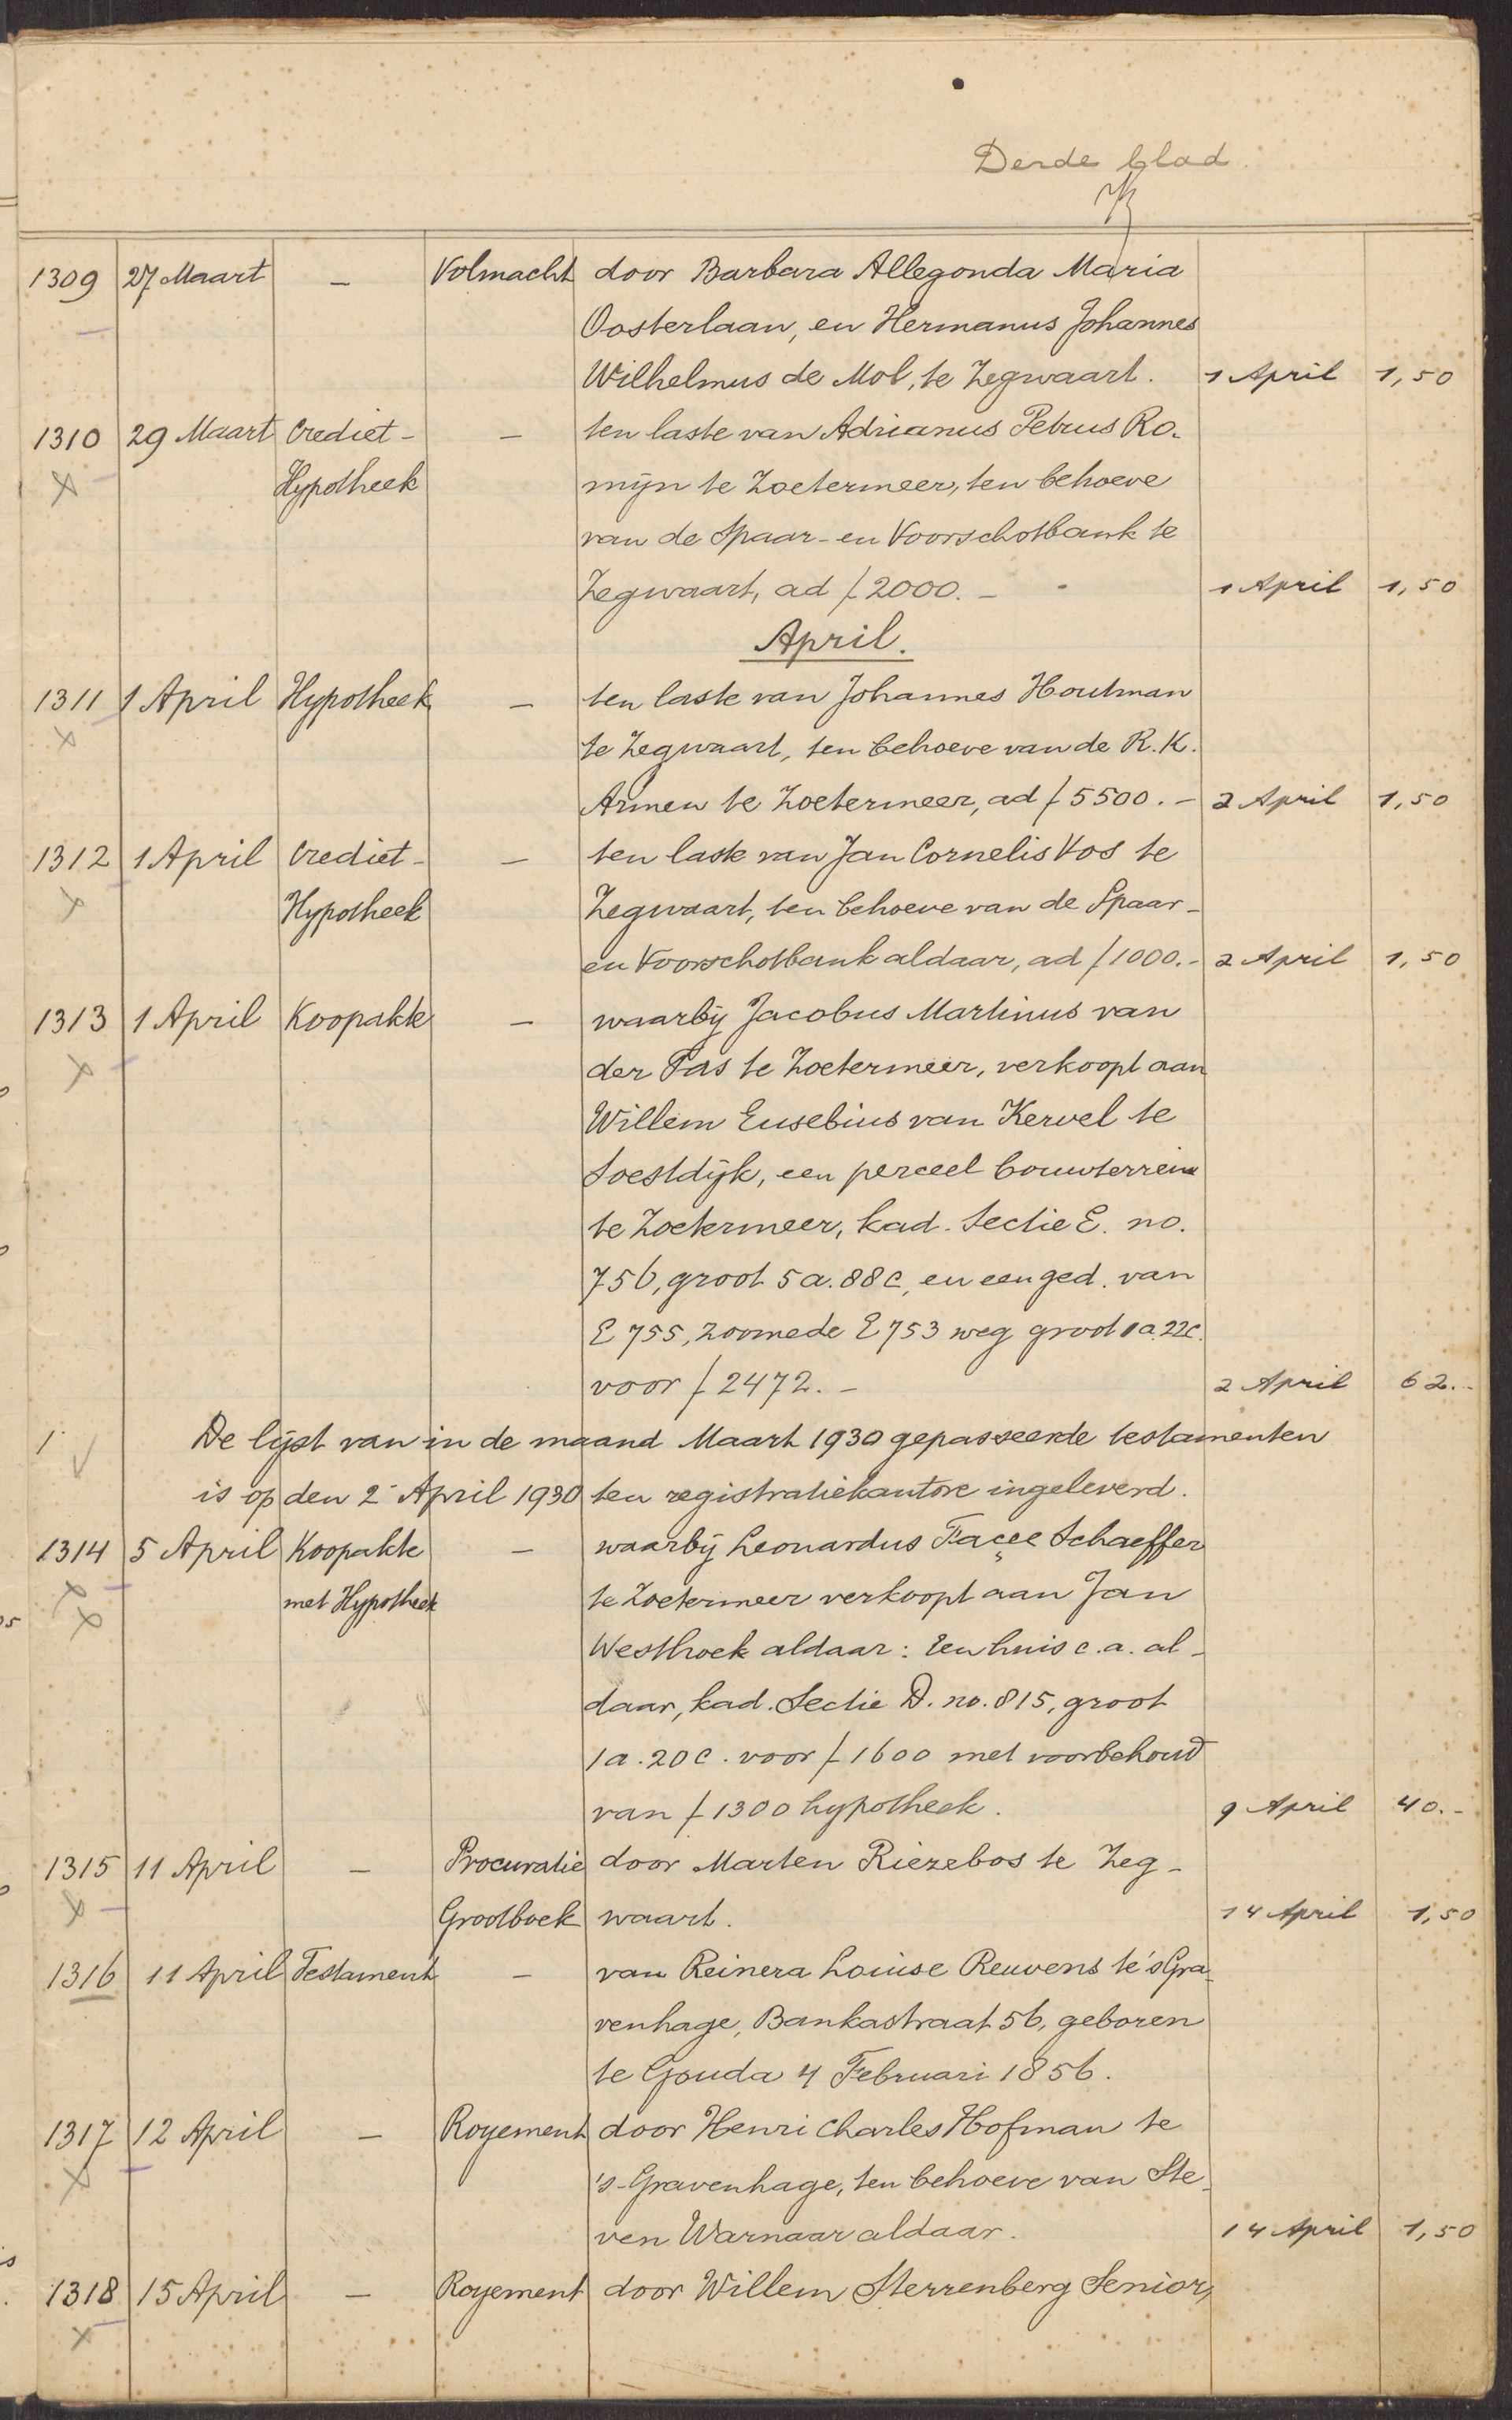 Derde blad.
1309 27 Maart — Volmacht door Barbara Allegonda Maria
Oosterlaan, en Hermanus Johannes
Wilhelmus de Mol, te Zegwaart. 1 April 1,50
1310 29 Maart Crediet- — ten laste van Adrianus Petrus Ro-
Hypotheek mijn te Zoetermeer, ten behoeve
van de Spaar- en Voorschotbank te
Zegwaart, ad ƒ 2000.- 1 April 1,50
April.
1311 1 April Hypotheek — ten laste van Johannes Houtman
te Zegwaart, ten behoeve van de R.K.
Armen te Zoetermeer, ad ƒ 5500.- 2 April 1,50
1312 1 April Crediet- — ten laste van Jan Cornelis Vos te
Hypotheek Zegwaart, ten behoeve van de Spaar-
en Voorschotbank aldaar, ad ƒ 1000.- 2 April 1,50
1313 1 April Koopakte — waarbij Jacobus Martinus van
der Pas te Zoetermeer, verkoopt aan
Willem Eusebius van Kervel te
Soestdijk, een perceel bouwterrein
te Zoetermeer, kad. Sectie E. no.
756, groot 5 a. 88 c, en een ged. van
E 755, zoomede E 753 weg groot 1 a. 22 c.
voor ƒ 2472.- 2 April 62.-
1. De lijst van in de maand Maart 1930 gepasseerde testamenten
is op den 2 April 1930 ten registratiekantore ingeleverd.
1314 5 April Koopakte — waarbij Leonardus Façee Schaeffer
met Hypotheek te Zoetermeer verkoopt aan Jan
Westhoek aldaar: Een huis c.a. al-
daar, kad. Sectie D. no. 815, groot
1 a. 20 c. voor ƒ 1600 met voorbehoud
van ƒ 1300 hypotheek. 9 April 40.-
1315 11 April — Procuratie door Marten Riezebos te Zeg-
Grootboek waart. 14 April 1,50
1316 11 April Testament — van Reinera Louise Reuvens te 's Gra-
venhage, Bankastraat 56, geboren
te Gouda 4 Februari 1856.
1317 12 April — Royement door Henri Charles Hofman te
's-Gravenhage, ten behoeve van Ste-
ven Warnaar aldaar. 14 April 1,50
1318 15 April — Royement door Willem Sterrenberg Senior,